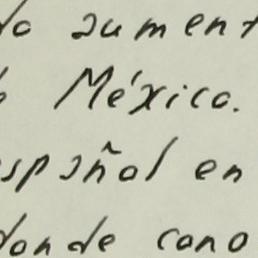 do aument
México.
español en
donde cono